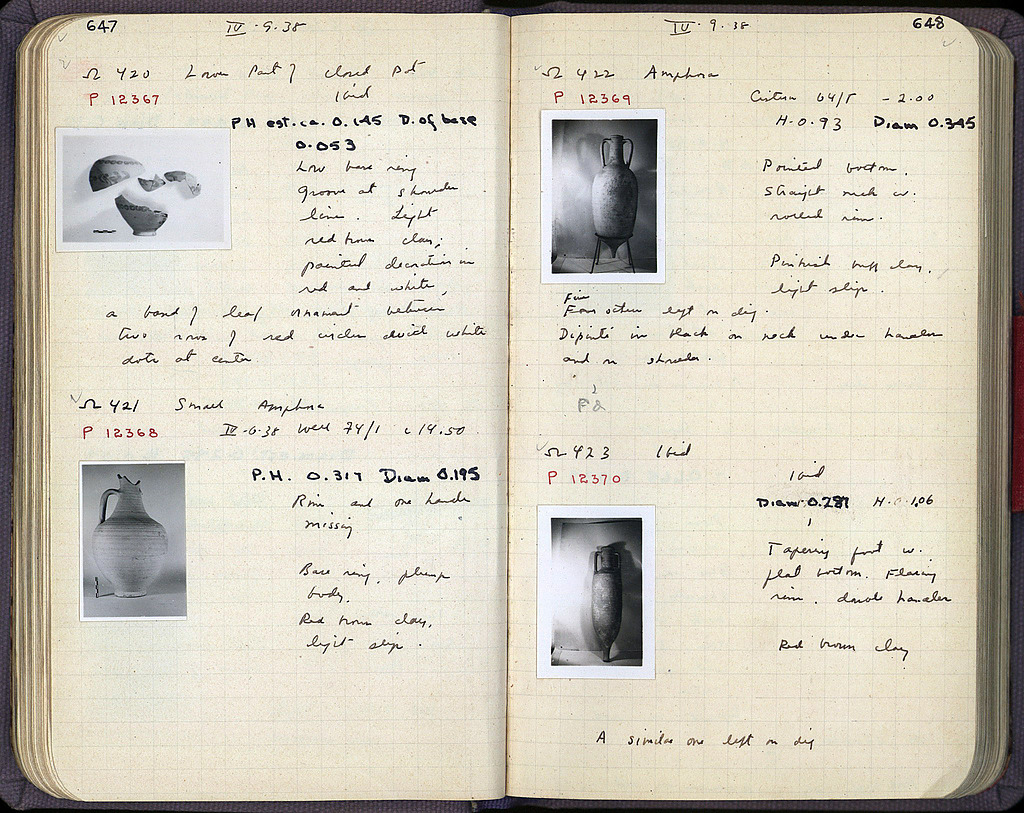 647
IV · 9 · 38
Ω 420 Lower Part of closed Pot
P 12367 Ibid
PH est. ca. 0.145 D. of base
0.053
Low base ring
groove at shoulder
line. Light
red brown clay;
painted decoration in
red and white,
a band of leaf ornament between
two rows of red circles with white
dots at center.
Ω 421 Small Amphora
P 12368 IV · 6 · 38 Well 74/1 c 14.50
P.H. 0.317 Diam 0.195
Rim and one handle
missing
Base ring, plump
body.
Red brown clay,
light slip.
648
IV · 9 · 38
Ω 422 Amphora
P 12369 Cistern 64/Γ - 2.00
H. 0.93 Diam 0.345
Pointed bottom.
Straight neck w.
rolled rim.
Pinkish buff clay.
light slip.
Five
Four others left on dig.
Dipinti in black on neck under handles
and on shoulder.
Ω 423 Ibid
P 12370 Ibid
Diam 0.287 H. 1.06
Tapering foot w.
flat bottom. Flaring
rim. double handles
Red brown clay
A similar one left on dig